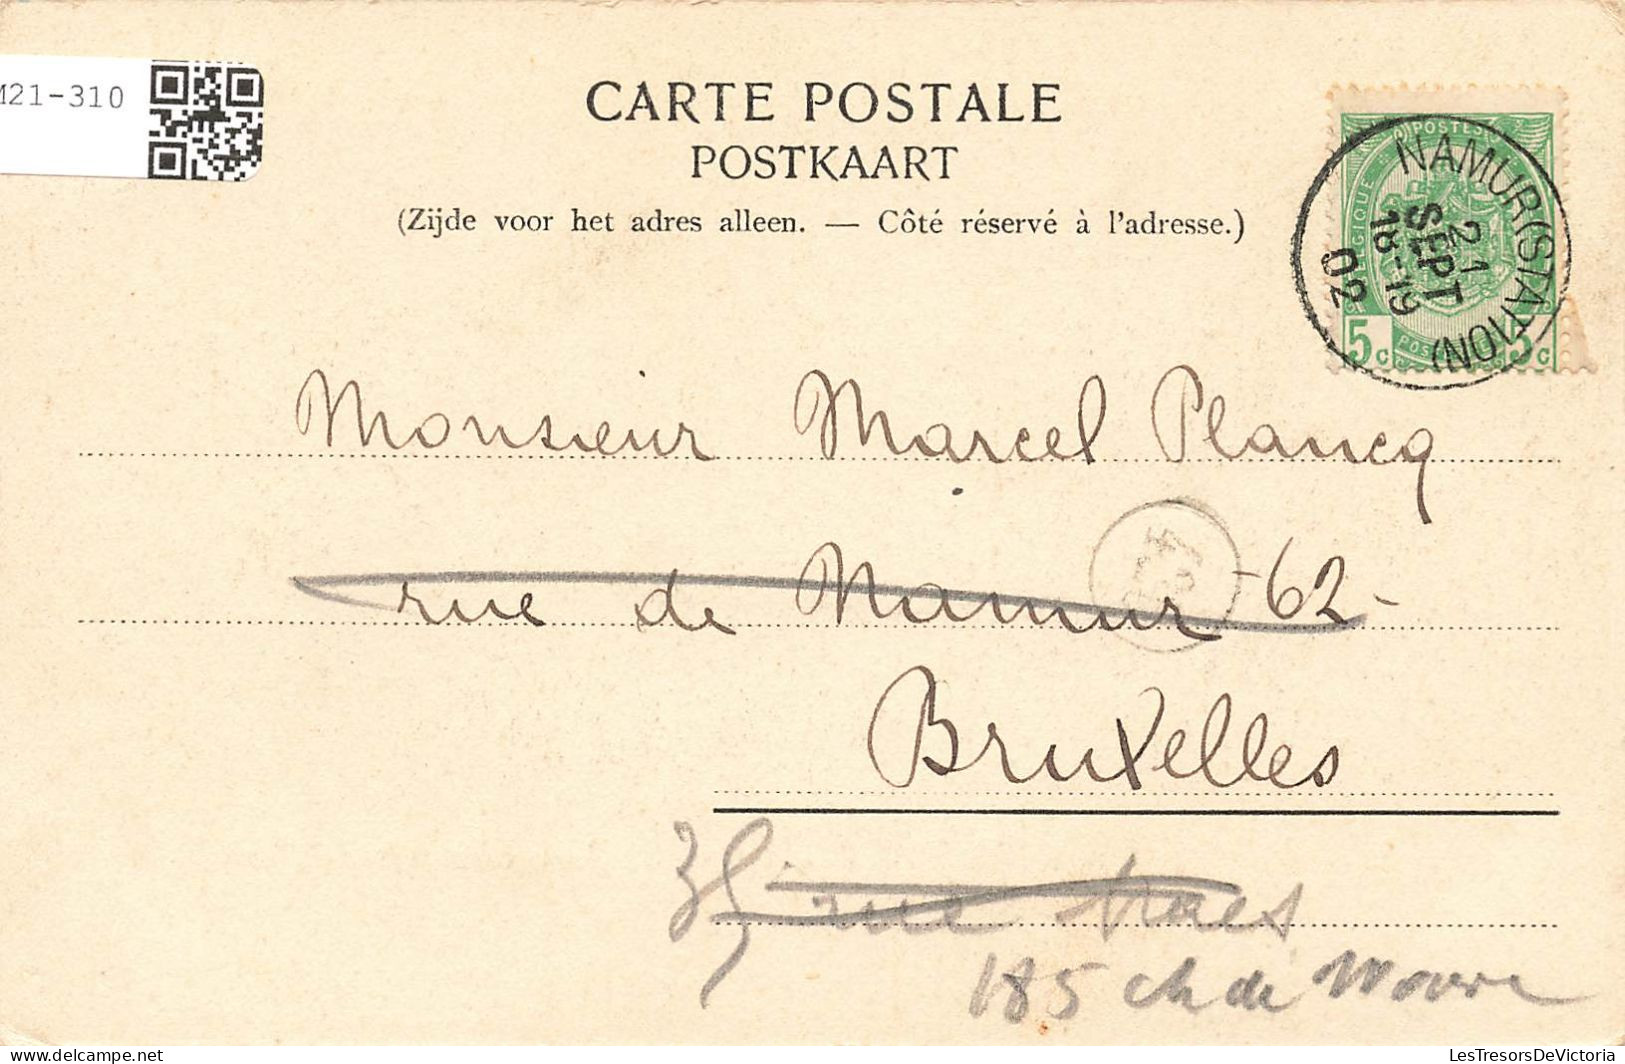 M21-310
CARTE POSTALE
POSTKAART
(Zijde voor het adres alleen. — Côté réservé à l'adresse.)
POSTES
BELGIQUE
5c 5c
NAMUR (STATION)
21
SEPT
18-19
02
Monsieur Marcel Plancq
rue de Namur 62-
Bruxelles
rue
185 ch de Wavre
LesTresorsDeVictoria